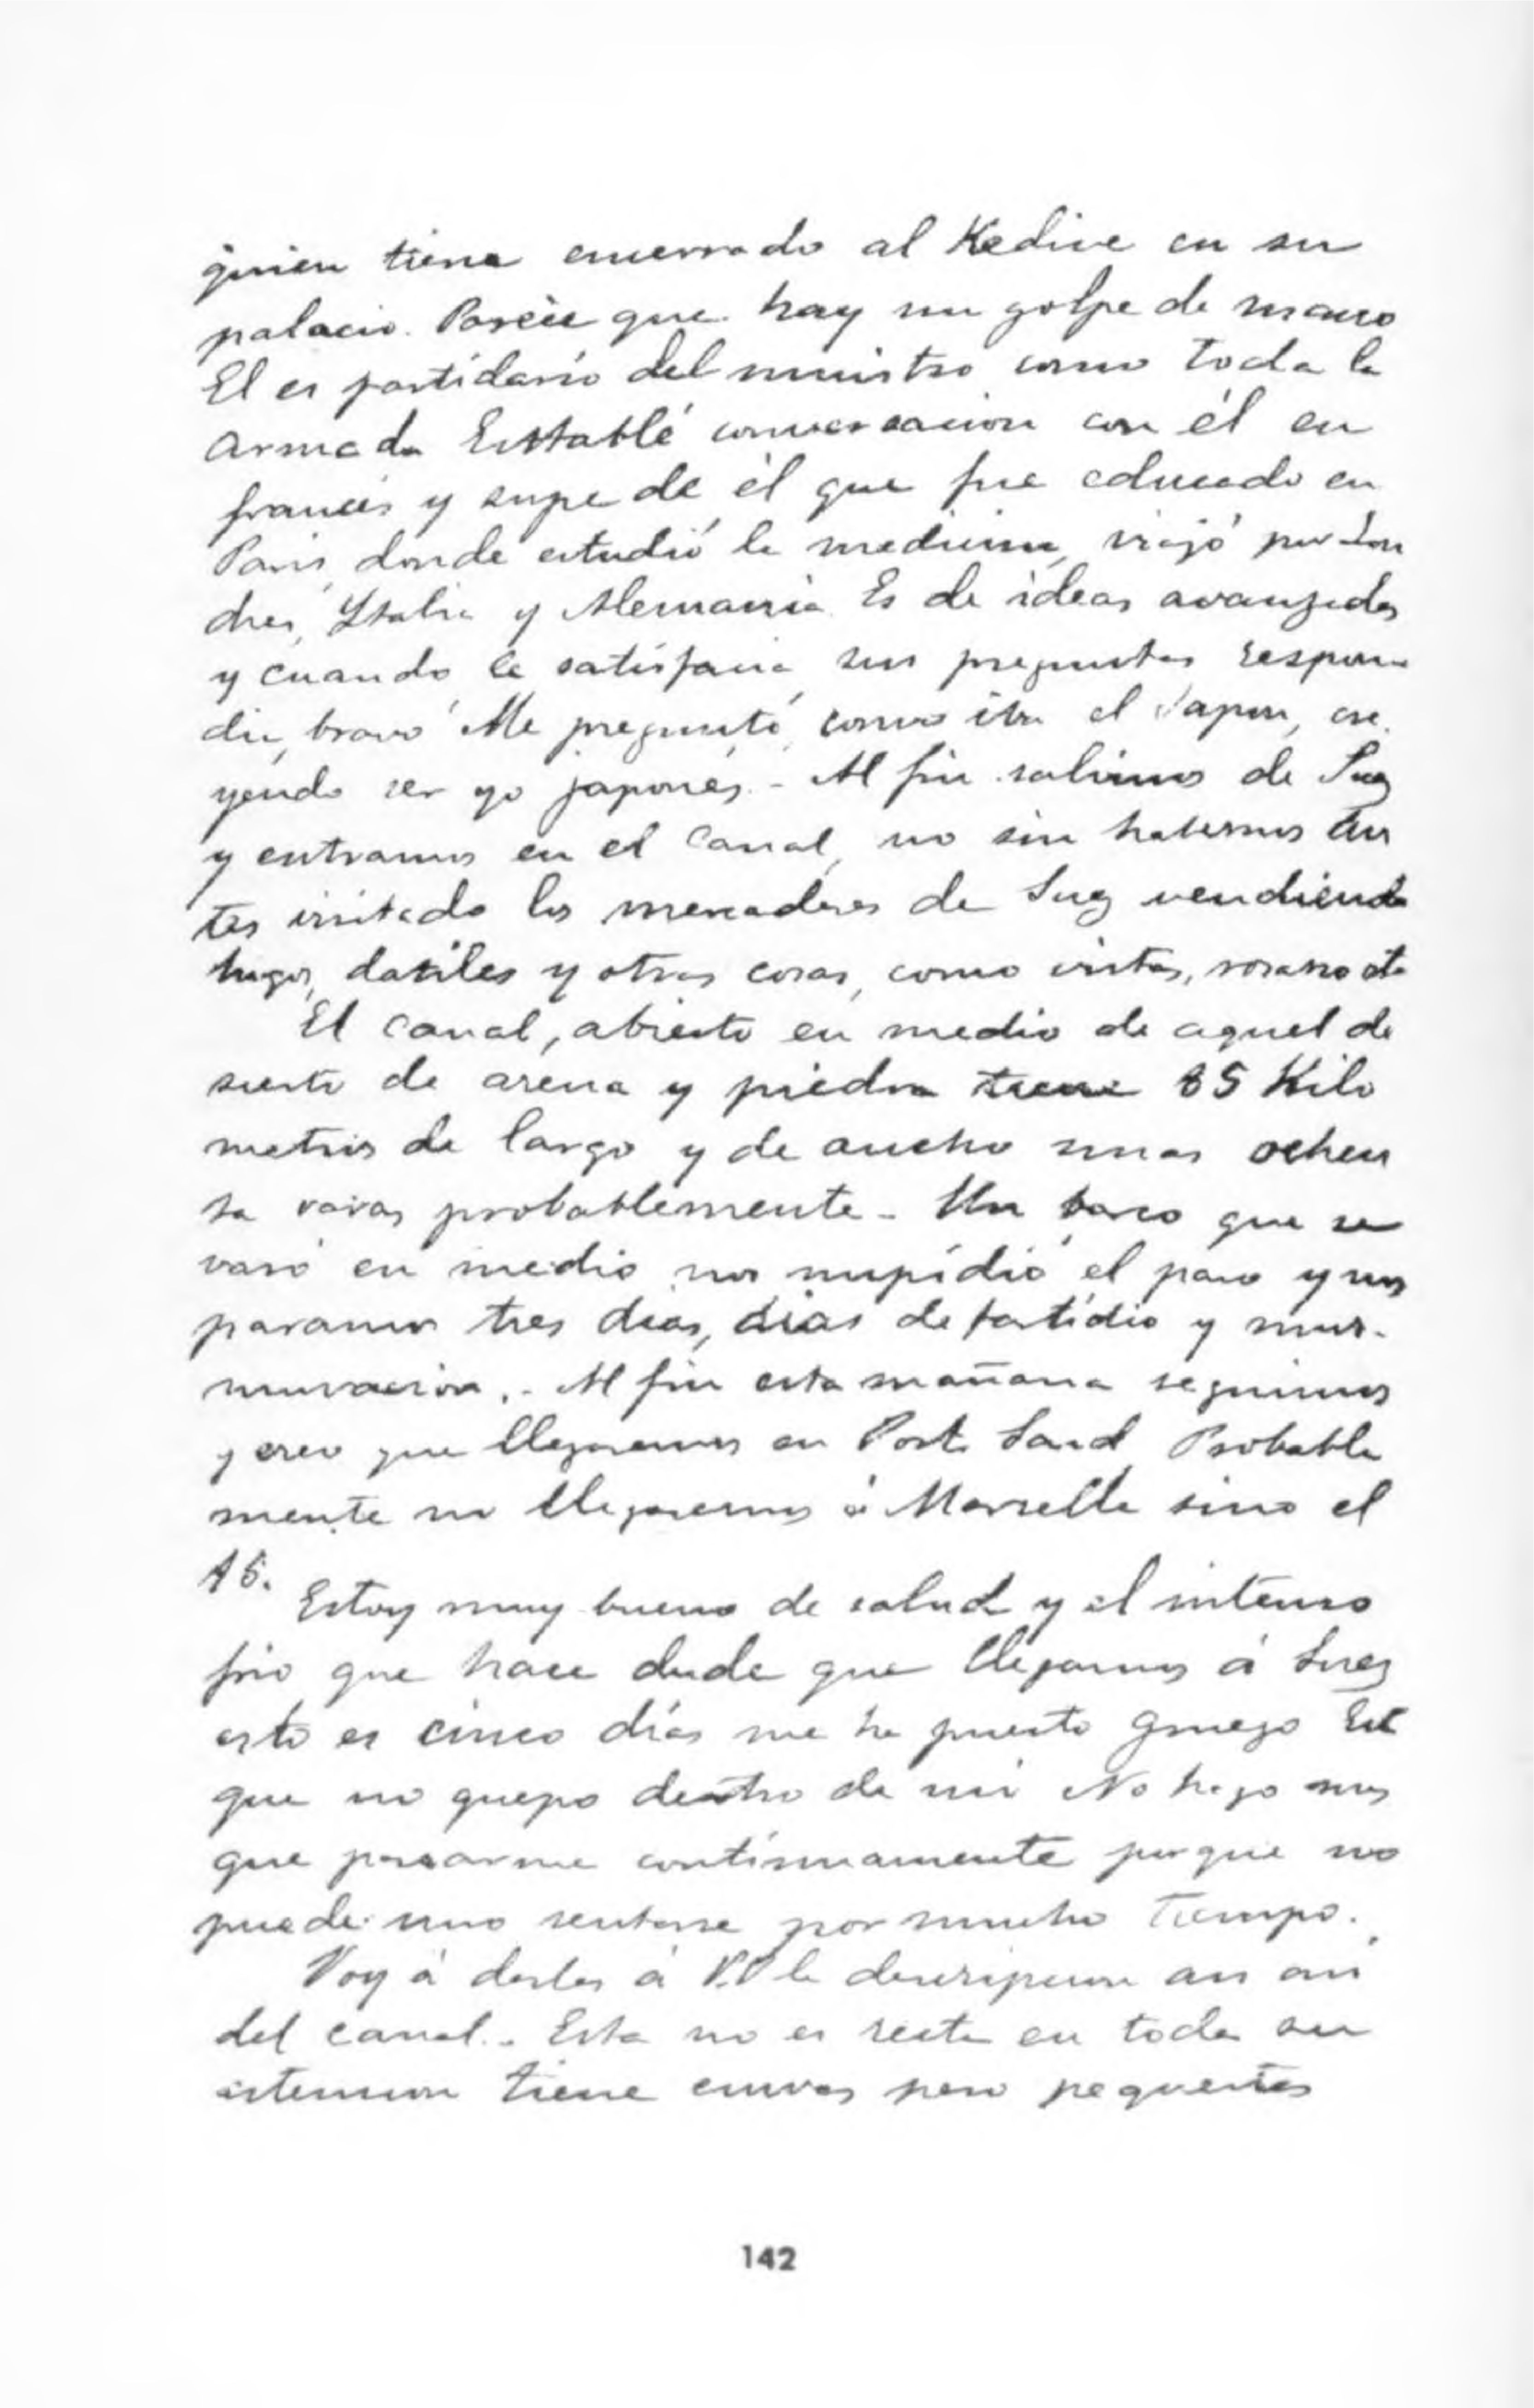 quien tiene encerrado al Kedive en su
palacio. Parece que hay un golpe de mano
El es partidario del ministro como toda la
armada Establé conversacion con él en
francés y supe de él que fue educado en
Paris, donde estudió la medicina, viajó por Lon
dres, Ytalia y Alemania. Es de ideas avanzadas
y cuando le satisfacia sus preguntas respon
dia, bravo Me preguntó, como iba el Japon, cre
yendo ser yo japonés. - Al fin salimos de Suez
y entramos en el Canal, no sin habernos an
tes visitado los mercaderes de Suez vendiendo
higos, datiles y otras cosas, como vistas, rosario etc
El canal, abierto en medio de aquel de
sierto de arena y piedra tiene 85 Kilo
metros de largo y de ancho unas ochen
ta varas probablemente - Un barco que se
varó en medio nos impidió el paso y nos
paramos tres dias, dias de fastidio y mur-
muracion. - Al fin esta mañana seguimos
y creo que llegaremos en Port. Said Probable
mente no llegaremos á Marsella sino el
15.
Estoy muy bueno de salud y el intenso
frio que hace desde que llegamos á Suez
esto es cinco días me ha puesto grueso
que no quepo dentro de mi No hago mas
que pasearme continuamente porque no
puede uno sentarse por mucho tiempo.
Voy á darles á VV la descripcion asi asi
del canal. - Esta no es recta en toda su
estension tiene curvas pero pequeñas
142